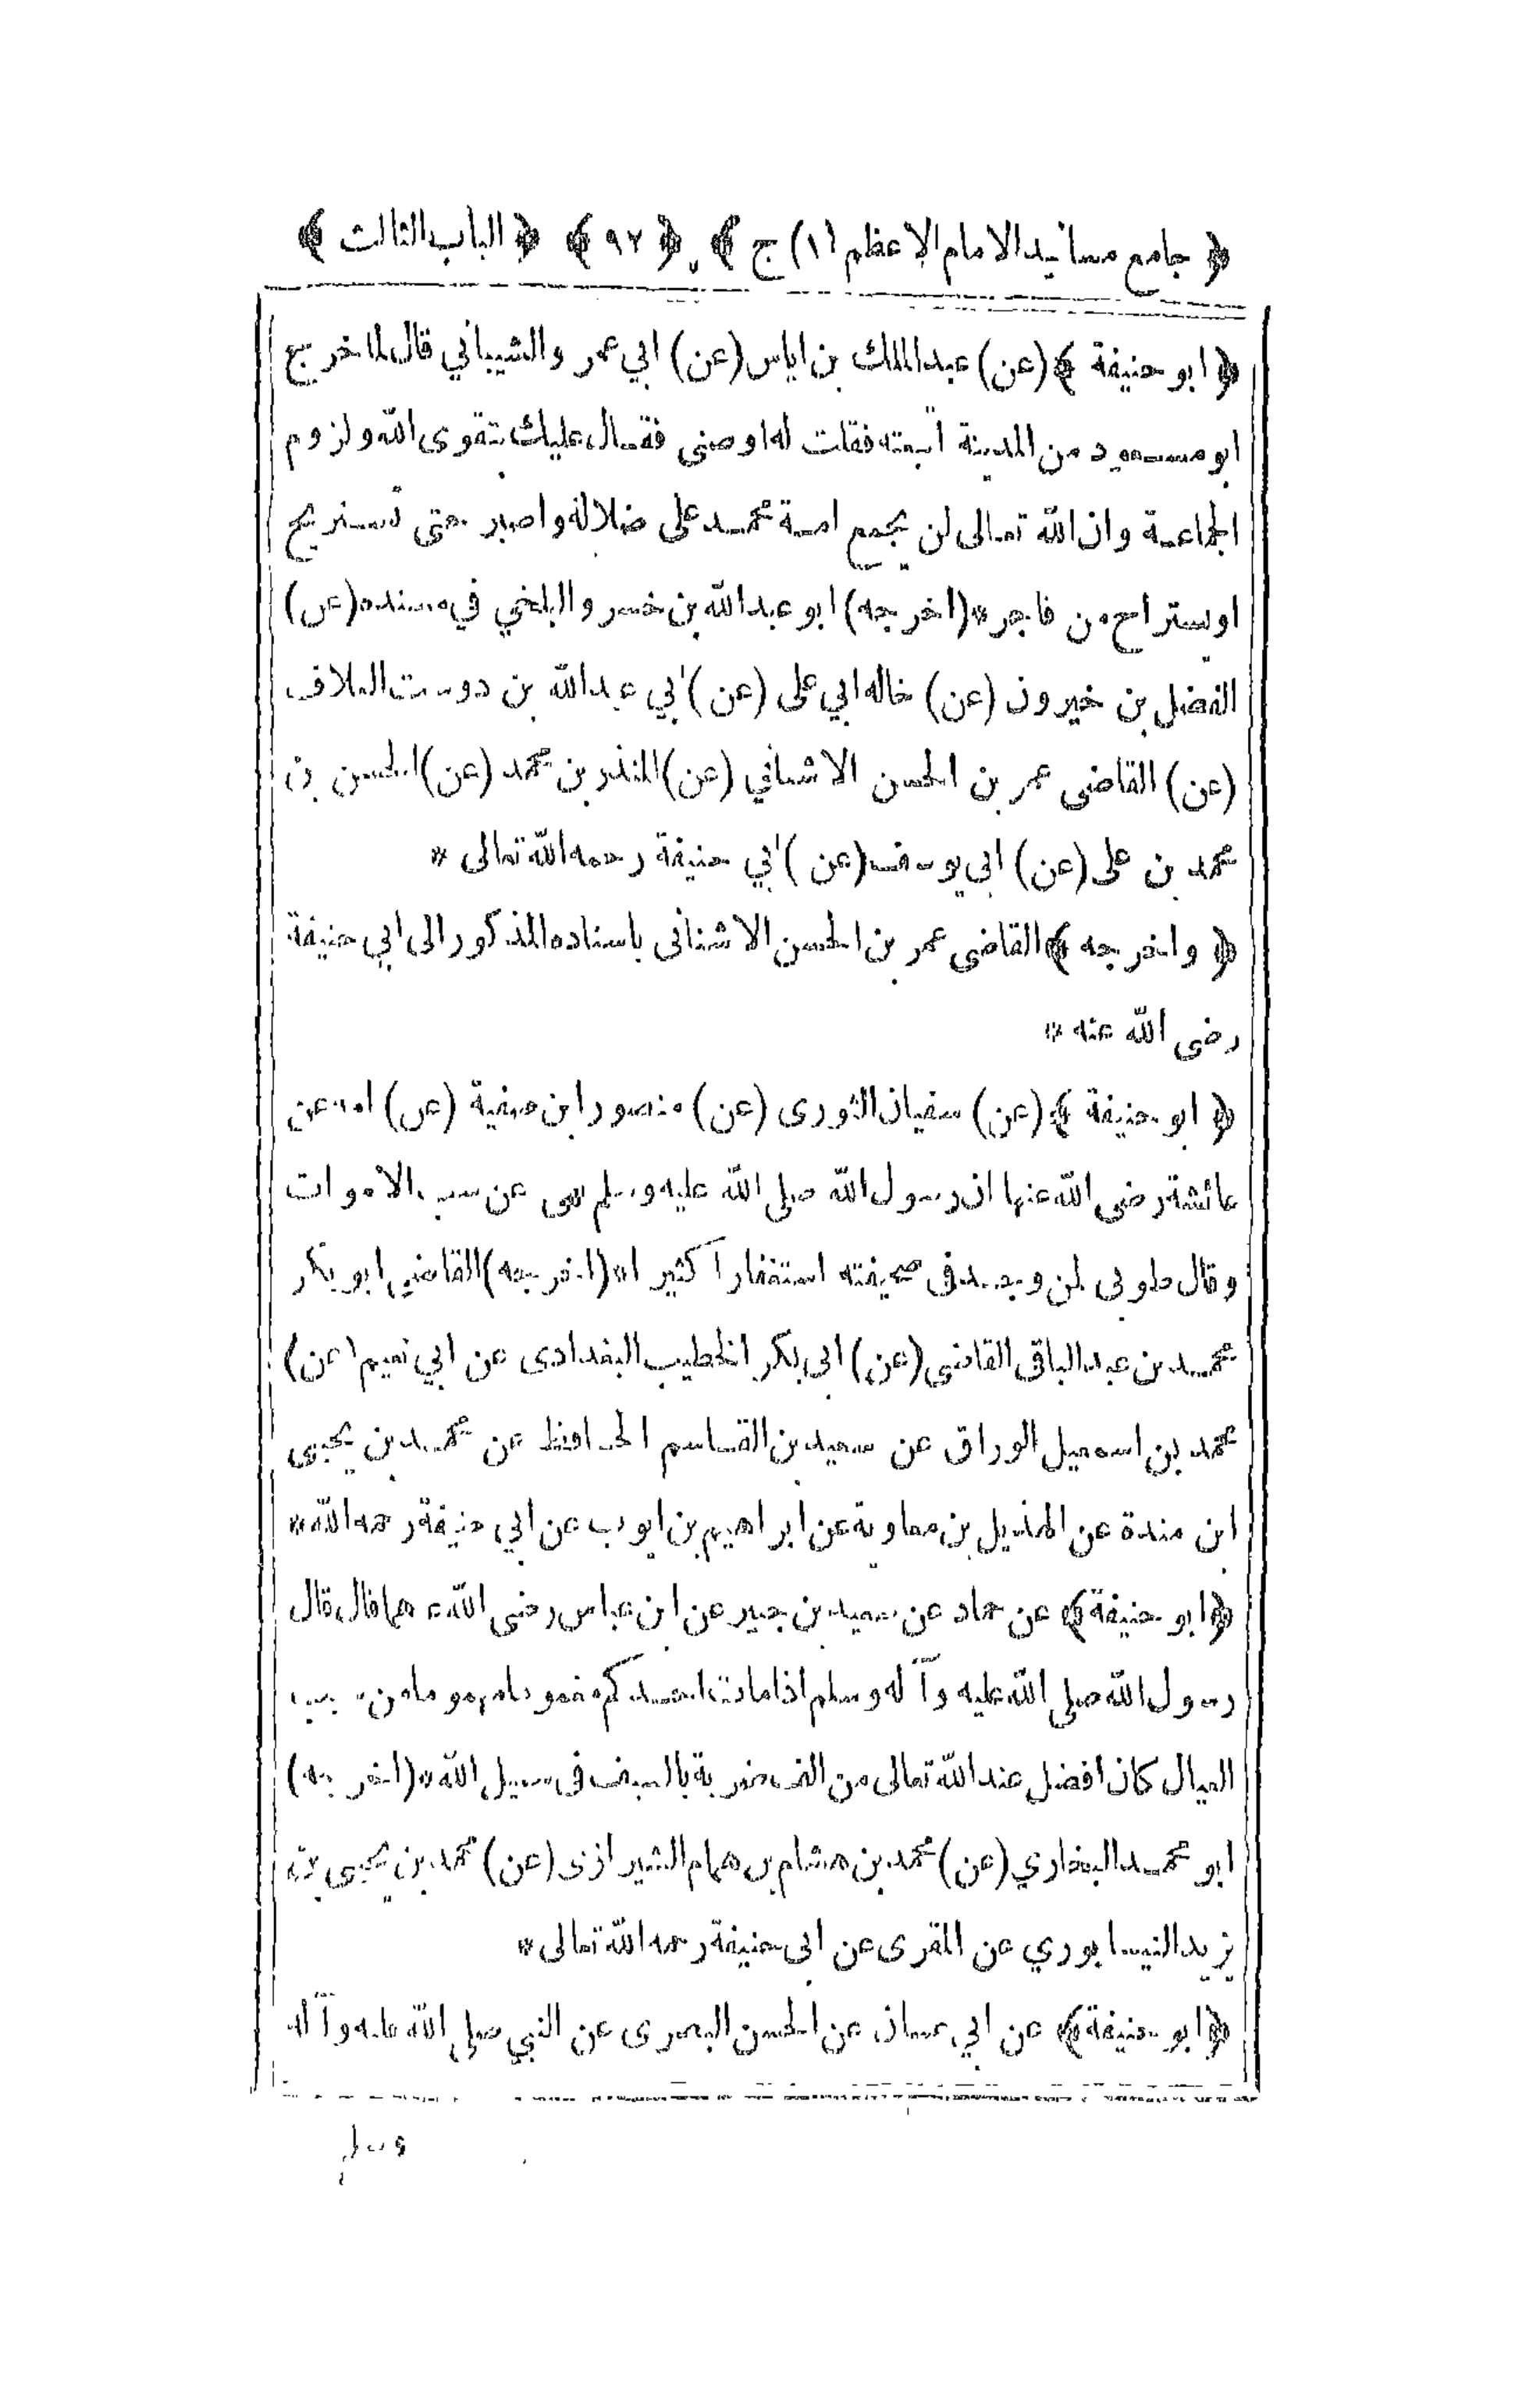 ﴿ جامع مسانيد الامام الاعظم (١) ج ﴾ ﴿ ٩٧ ﴾ ﴿ الباب الثالث ﴾
﴿ ابو حنيفة ﴾ (عن) عبدالملك بن اياس (عن) ابي عمر والشيباني قال لما خرج
ابو مسعود من المدينة اتبعته فقلت له اوصنى فقال عليك بتقوى الله ولزوم
الجماعة وان الله تعالى لن يجمع امة محمد على ضلالة واصبر حتى تستريح
او يستراح من فاجر * (اخرجه) ابو عبدالله بن خسر والبلخي في مسنده (عن)
الفضل بن خيرون (عن) خاله ابي على (عن) ابي عبدالله بن دوست العلاف
(عن) القاضى عمر بن الحسن الاشناني (عن) المنذر بن محمد (عن) الحسن بن
محمد بن على (عن) ابى يوسف (عن) ابي حنيفة رحمه الله تعالى *
﴿ واخرجه ﴾ القاضى عمر بن الحسن الاشنانى باسناده المذكور الى ابي حنيفة
رضى الله عنه *
﴿ ابو حنيفة ﴾ (عن) سفيان الثورى (عن) منصور ابن صفية (عن) امه عن
عائشة رضى الله عنها ان رسول الله صلى الله عليه وسلم نهى عن سب الاموات
وقال طوبى لمن وجد فى صحيفته استغفارا كثيرا * (اخرجه) القاضى ابو بكر
محمد بن عبدالباقى القاضى (عن) ابى بكر الخطيب البغدادى عن ابي نعيم (عن)
محمد بن اسمعيل الوراق عن سعيد بن القاسم الحافظ عن محمد بن يحيى
ابن مندة عن الهذيل بن معاوية عن ابراهيم بن ايوب عن ابي حنيفة رحمه الله *
﴿ ابو حنيفة ﴾ عن حماد عن سعيد بن جبير عن ابن عباس رضى الله عنهما قال قال
رسول الله صلى الله عليه وآله وسلم اذا مات احدكم مغموما مهموما من سبب
العيال كان افضل عند الله تعالى من الف ضربة بالسيف فى سبيل الله * (اخرجه)
ابو محمد البخاري (عن) محمد بن هشام بن همام الشيرازى (عن) محمد بن يحيى بن
يزيد النيسابوري عن المقرى عن ابى حنيفة رحمه الله تعالى *
﴿ ابو حنيفة ﴾ عن ابي غسان عن الحسن البصرى عن النبي صلى الله عليه وآله
وسلم